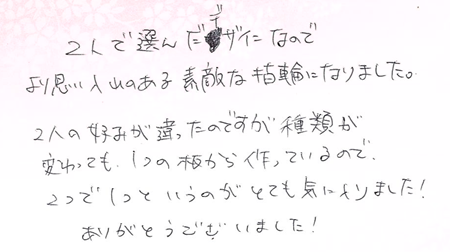 2人で選んだデザインなので
より思い入れのある素敵な指輪になりました。
2人の好みが違ったのですが種類が
変わっても、1つの板から作っているので、
2つで1つというのがとても気に入りました!
ありがとうございました!